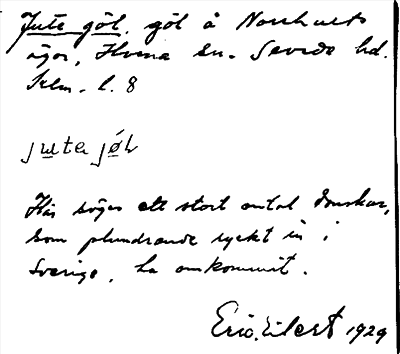 Jute göl, göl å Norrhults
ägor, Hvena sn. Sevede hd.
Klm. l. 8
jɯta jø̱l
Här säges ett stort antal danskar,
som plundrande ryckt in i
Sverige, ha omkommit.
Eric. Eilert 1929